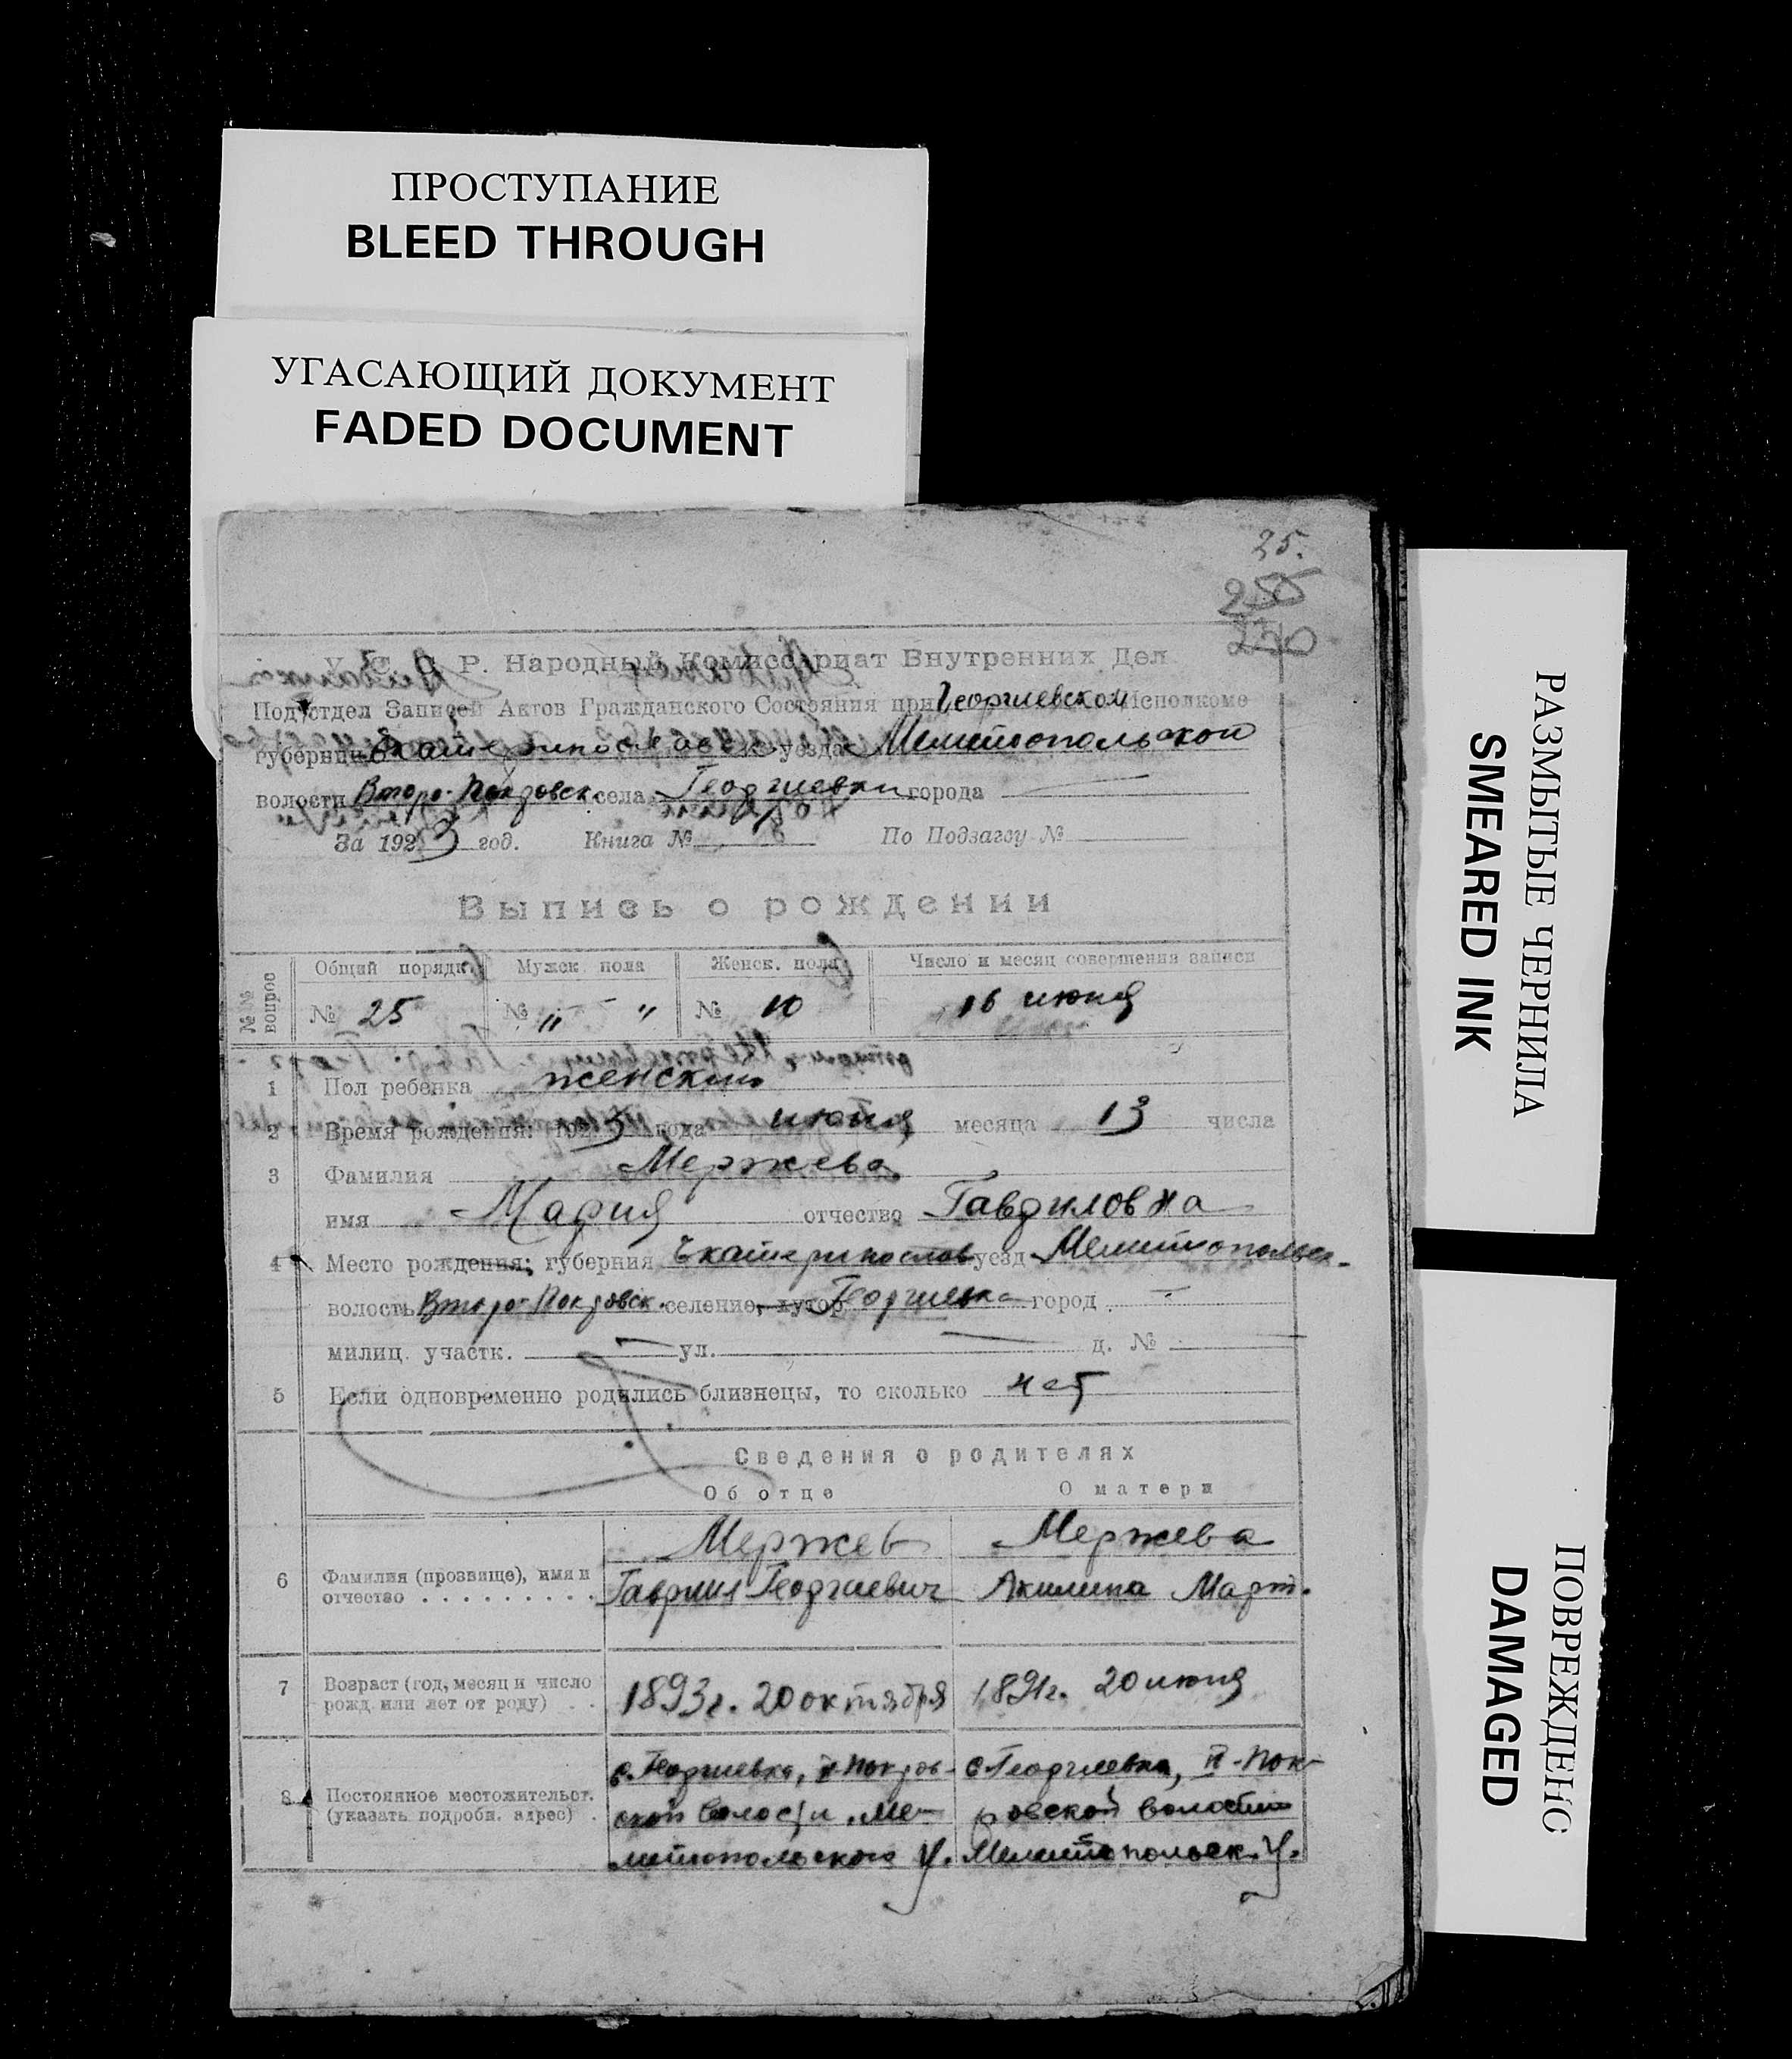 ПРОСТУПАНИЕ
BLEED THROUGH
УГАСАЮЩИЙ ДОКУМЕНТ
FADED DOCUMENT
25.
255
250
У. С. С. Р. Народный Комиссариат Внутренних Дел
Под'отдел Записей Актов Гражданского Состояния при Георгиевском Исполкоме
губернии Екатеринославск. уезда Мелитопольской
волости Второ-Покровск. села Георгиевки города
За 1923 год. Книга № По Подзагсу №
Выпись о рождении
№№ вопрос Общий порядк. Мужск. пола Женск. пола Число и месяц совершения записи
№ 25 № " - " № 10 16 июня
1 Пол ребенка женский
2 Время рождения: 1923 года июня месяца 13 числа
3 Фамилия Мержева
имя Мария отчество Гавриловна
4 Место рождения: губерния Екатеринослав уезд Мелитопольск.
волость Второ-Покровск. селение, хутор Георгиевка город -
милиц. участк. ул. д. №
5 Если одновременно родились близнецы, то сколько нет
Сведения о родителях
Об отце О матери
Мержев Мержева
6 Фамилия (прозвище), имя и отчество . . . . . . . . . Гаврил Георгиевич Акилина Март.
7 Возраст (год, месяц и число рожд. или лет от роду) . . 1893г. 20 октября 1891г. 20 июня
8 Постоянное местожительст. (указать подробн. адрес) .
с. Георгиевка, II-Покров- с. Георгиевка, II-Пок-
ской волости, Ме- ровской волости
литопольского У. Мелитопольск. У.
РАЗМЫТЫЕ ЧЕРНИЛА
SMEARED INK
ПОВРЕЖДЕНО
DAMAGED